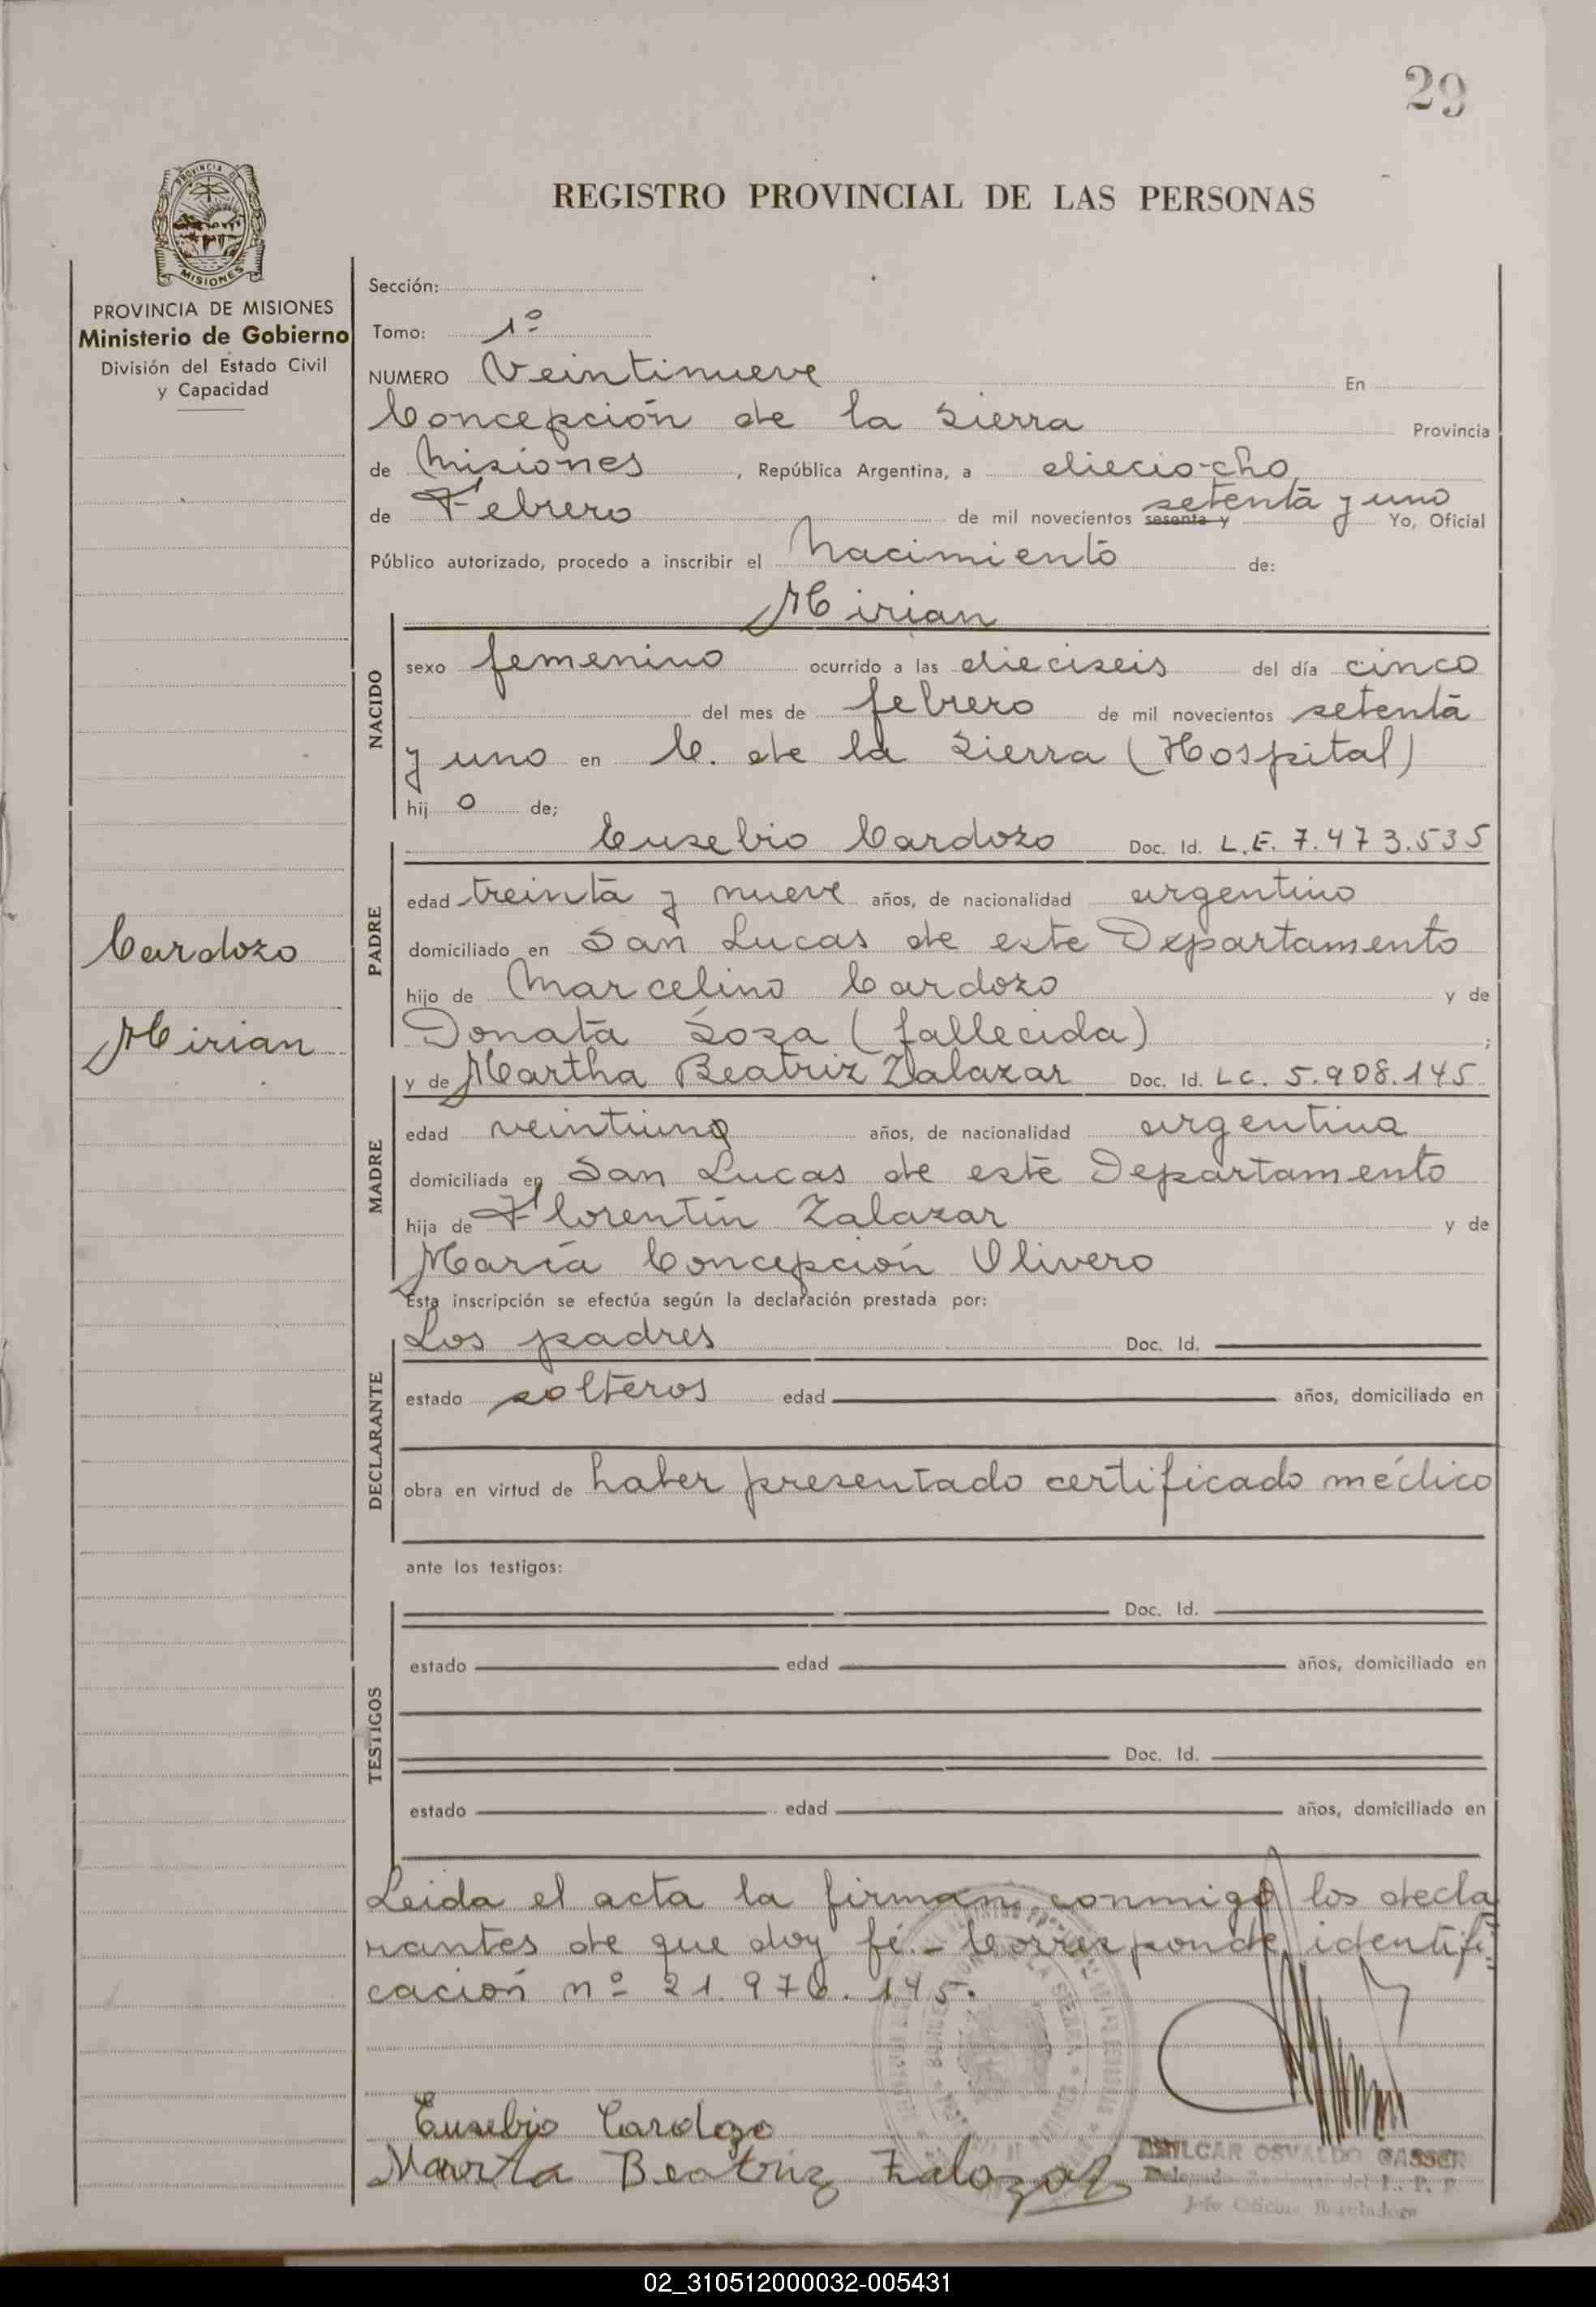 29
REGISTRO PROVINCIAL DE LAS PERSONAS
PROVINCIA DE
MISIONES
PROVINCIA DE MISIONES
Ministerio de Gobierno
División del Estado Civil
y Capacidad
Cardozo
Mirian
Sección:
Tomo: 1º
NUMERO Veintinueve En
Concepción de la Sierra Provincia
de Misiones, República Argentina, a dieciocho
de Febrero de mil novecientos sesenta y setenta y uno Yo, Oficial
Público autorizado, procedo a inscribir el Nacimiento de:
Mirian
NACIDO
sexo femenino ocurrido a las dieciseis del día cinco
del mes de febrero de mil novecientos setenta
y uno en C. de la Sierra (Hospital)
hij o de;
Eusebio Cardozo Doc. Id. L.E. 7.473.535
PADRE
edad treinta y nueve años, de nacionalidad argentino
domiciliado en San Lucas de este Departamento
hijo de Marcelino Cardozo y de
Donata Sosa (fallecida) ;
y de Martha Beatriz Zalazar Doc. Id. LC. 5.908.145
MADRE
edad veintiuno años, de nacionalidad argentina
domiciliada en San Lucas de este Departamento
hija de Florentín Zalazar y de
María Concepción Olivero
Esta inscripción se efectúa según la declaración prestada por:
Los padres Doc. Id.
DECLARANTE
estado solteros edad años, domiciliado en
obra en virtud de haber presentado certificado médico
ante los testigos:
TESTIGOS
Doc. Id.
estado edad años, domiciliado en
Doc. Id.
estado edad años, domiciliado en
Leida el acta la firman conmigo los decla
rantes de que doy fé.- Corresponde identifi
cación nº 21.976.145.
Eusebio Cardozo
Marta Beatriz Zalazar
AMILCAR OSVALDO GASSER
02_310512000032-005431